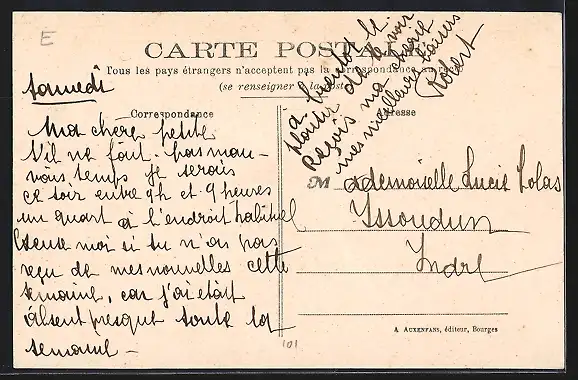 E
CARTE POSTALE
Tous les pays étrangers n'acceptent pas la correspondance au recto
(se renseigner à la poste)
Correspondance
Adresse
Samedi
Ma chère petite
S'il ne fait pas mau-
vais temps je serais
ce soir entre 9h et 9 heures
un quart à l'endroit habituel
Excuse moi si tu n'as pas
reçu de mes nouvelles cette
semaine, car j'ai était
absent presque toute la
semaine -
a bientôt le
plaisir de te voir
Reçois ma chérie
mes meilleurs baisers
Robert
Mademoiselle Lucie Colas
Issoudun
Indre
A. AUXENFANS, éditeur, Bourges
101